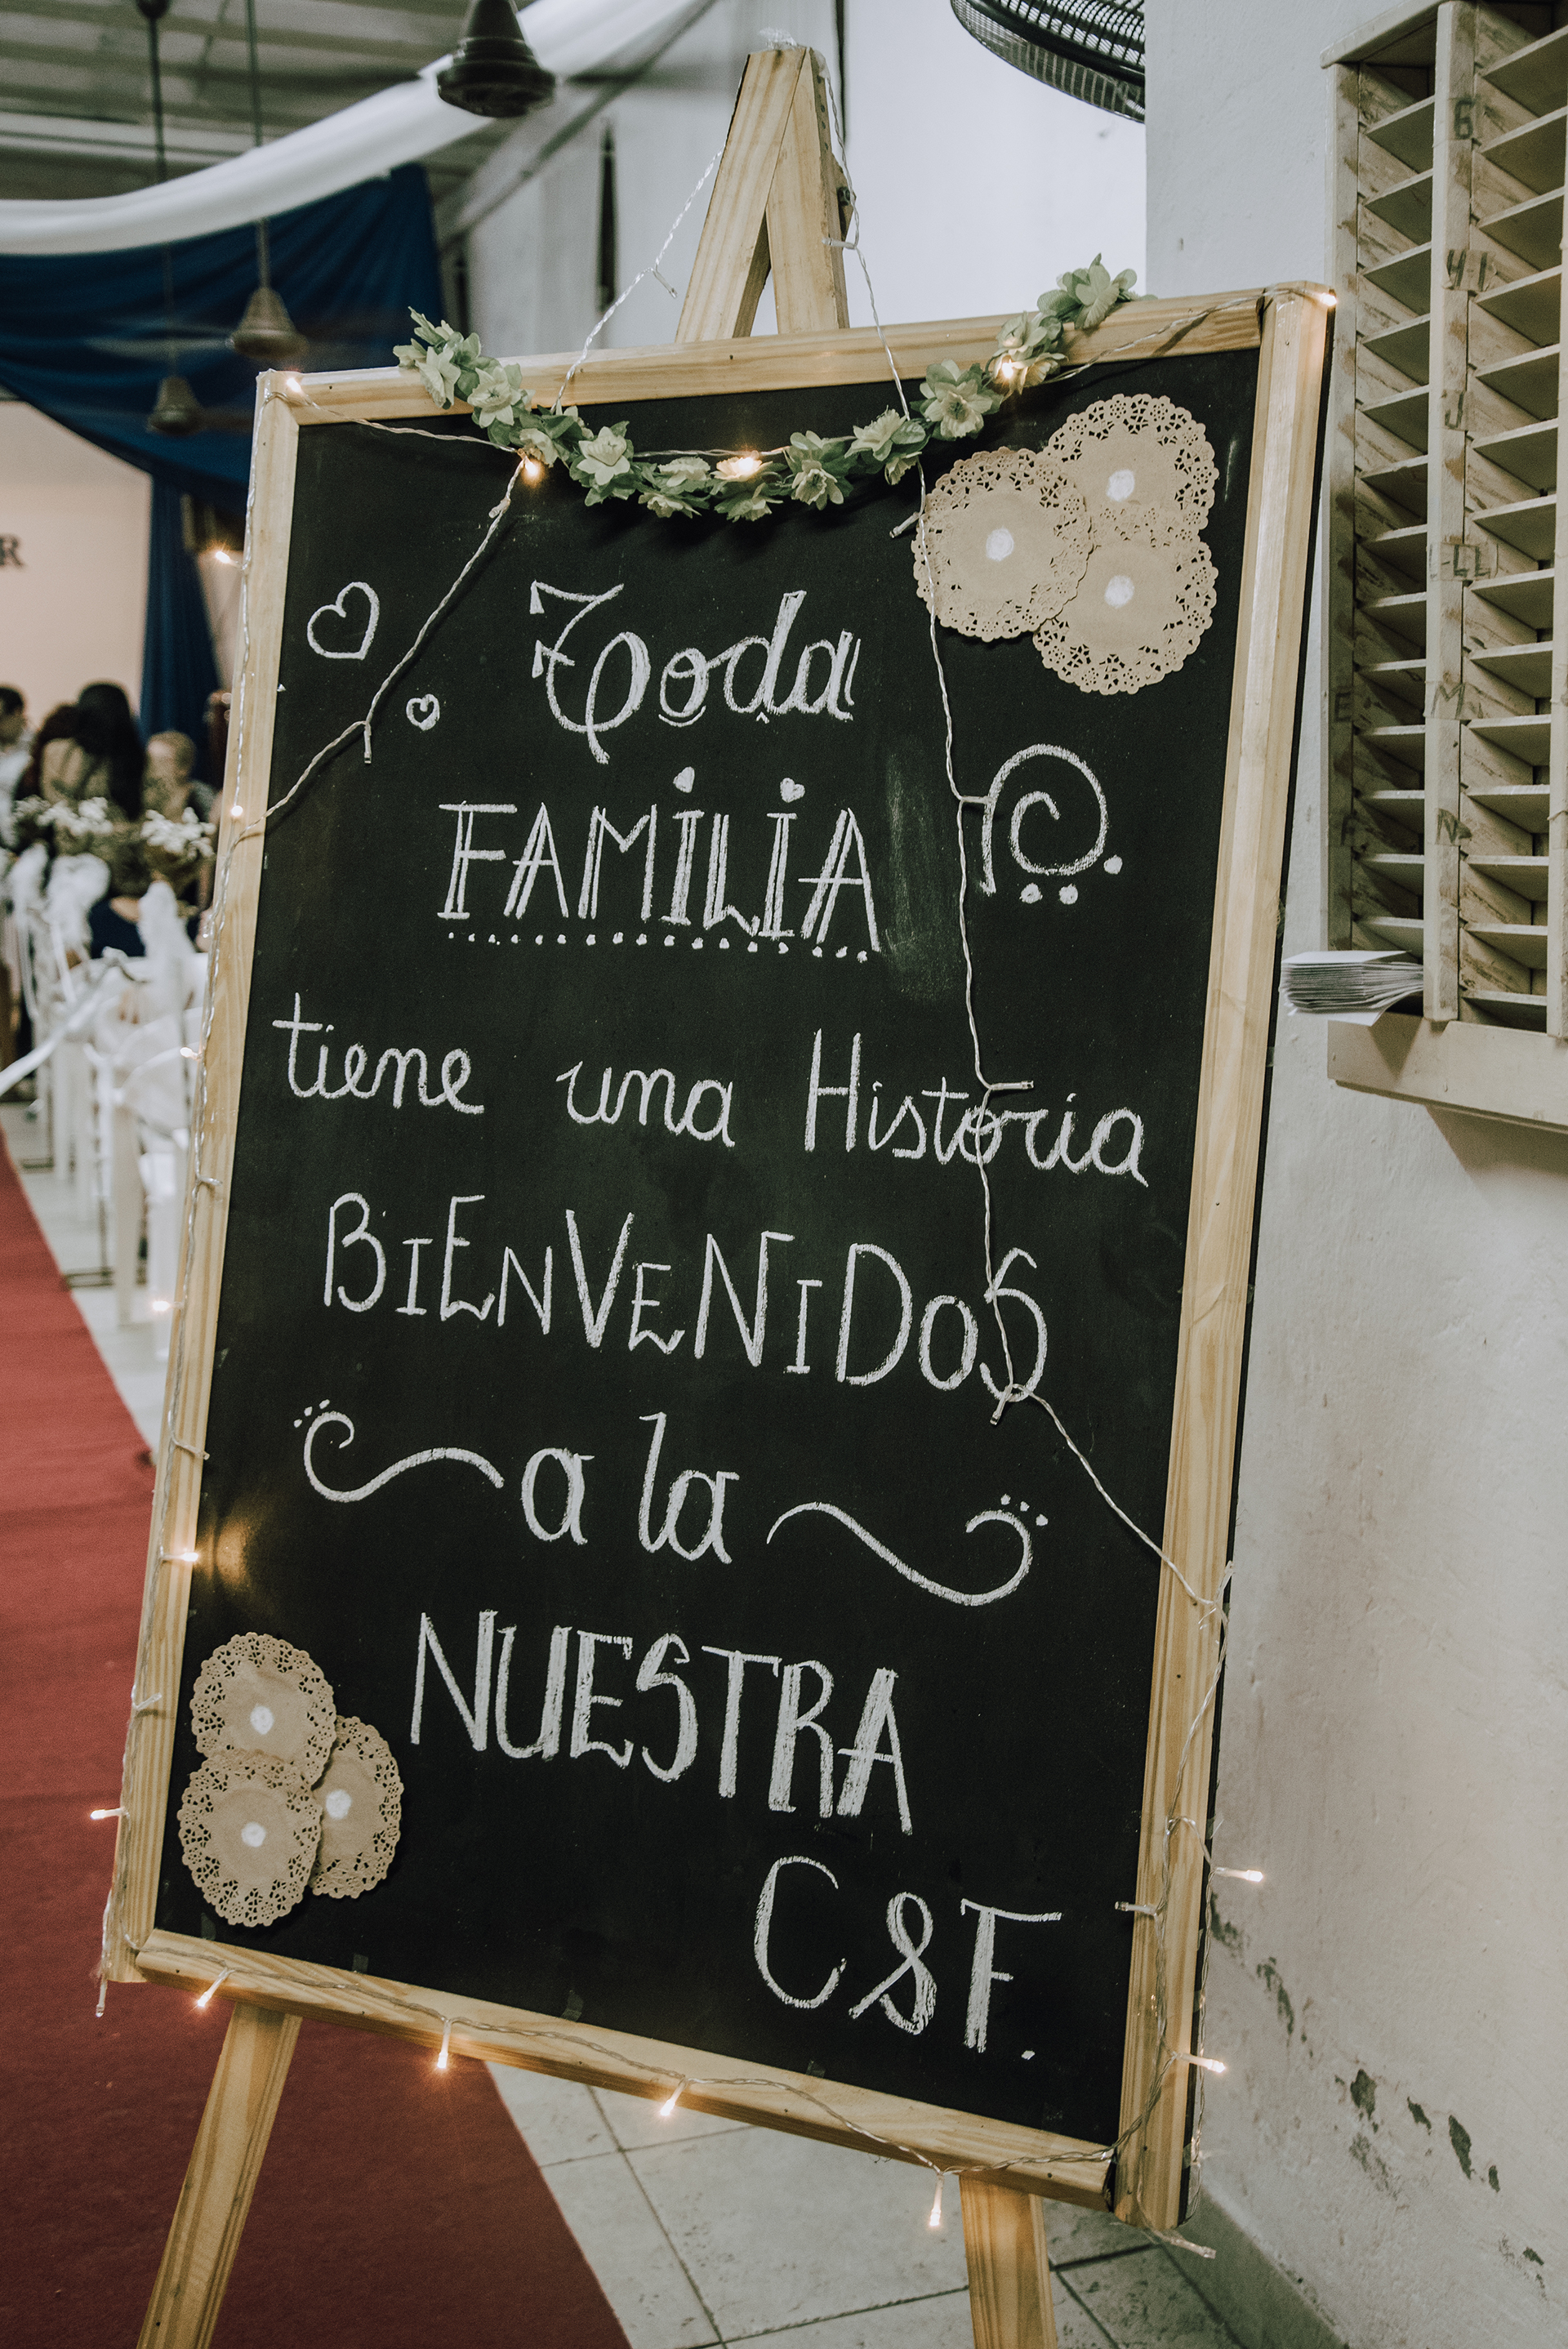 Toda
FAMILIA
tiene una Historia
BIENVENIDOS
a la
NUESTRA
C&F.
R
G
H-I
J
L-LL
M
N
E
F